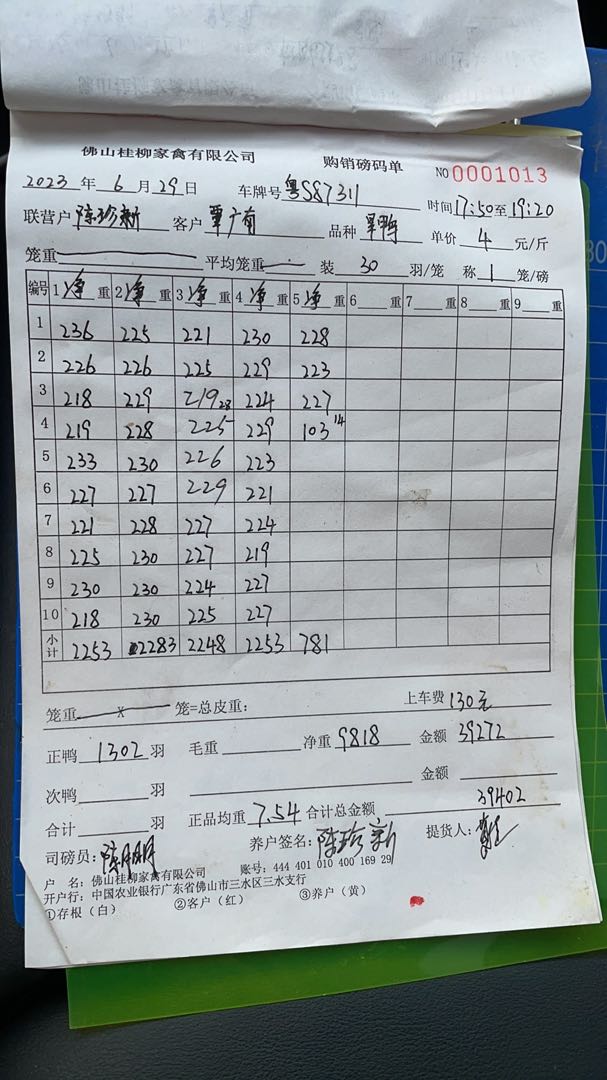 佛山桂柳家禽有限公司 购销磅码单 NO 0001013
2023 年 6 月 29 日 车牌号 粤SS8731 时间 17:50 至 19:20
联营户 陈珍新 客户 覃广南 品种 单价 4 元/斤
笼重 平均笼重 装 30 羽/笼 称 1 笼/磅
编号 1 净 重 2 净 重 3 净 重 4 净 重 5 净 重 6 重 7 重 8 重 9 重
1 236 225 221 230 228
2 226 226 225 229 223
3 218 229 219 28 224 227
4 219 228 225 229 103 14
5 233 230 226 223
6 227 227 229 221
7 221 228 227 224
8 225 230 227 219
9 230 230 224 227
10 218 230 225 227
小计 2253 2283 2248 2253 781
笼重 X 笼=总皮重: 上车费 130元
正鸭 1302 羽 毛重 净重 9818 金额 39272
次鸭 羽 金额
合计 羽 正品均重 7.54 合计总金额 39402
司磅员: 养户签名: 陈珍新 提货人:
户 名: 佛山桂柳家禽有限公司 账号: 444 401 010 400 169 29
开户行: 中国农业银行广东省佛山市三水区三水支行
①存根(白) ②客户(红) ③养户(黄)